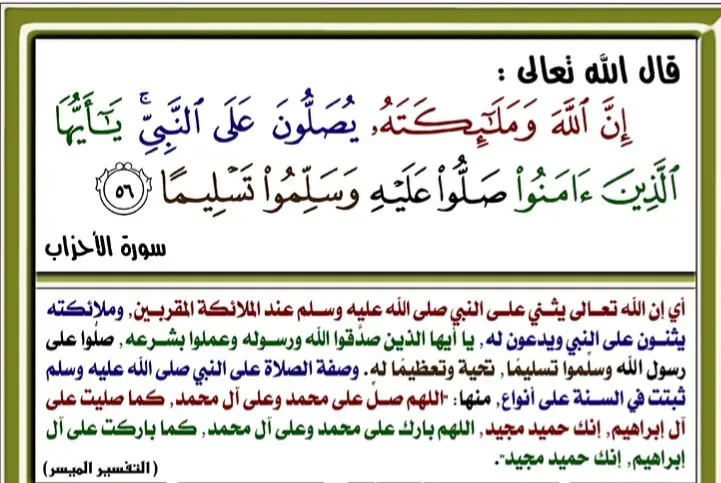 قال الله تعالى :
إِنَّ ٱللَّهَ وَمَلَٰٓئِكَتَهُۥ يُصَلُّونَ عَلَى ٱلنَّبِيِّۚ يَٰٓأَيُّهَا
ٱلَّذِينَ ءَامَنُوا۟ صَلُّوا۟ عَلَيْهِ وَسَلِّمُوا۟ تَسْلِيمًا ٥٦
سورة الأحزاب
أي إن الله تعالى يثني على النبي صلى الله عليه وسلم عند الملائكة المقربين, وملائكته
يثنون على النبي ويدعون له, يا أيها الذين صدَّقوا الله ورسوله وعملوا بشرعه, صلُّوا على
رسول الله وسلِّموا تسليمًا, تحية وتعظيمًا له. وصفة الصلاة على النبي صلى الله عليه وسلم
ثبتت في السنة على أنواع, منها: "اللهم صلِّ على محمد وعلى آل محمد, كما صليت على
آل إبراهيم, إنك حميد مجيد, اللهم بارك على محمد وعلى آل محمد, كما باركت على آل
إبراهيم, إنك حميد مجيد".
(التفسير الميسر)